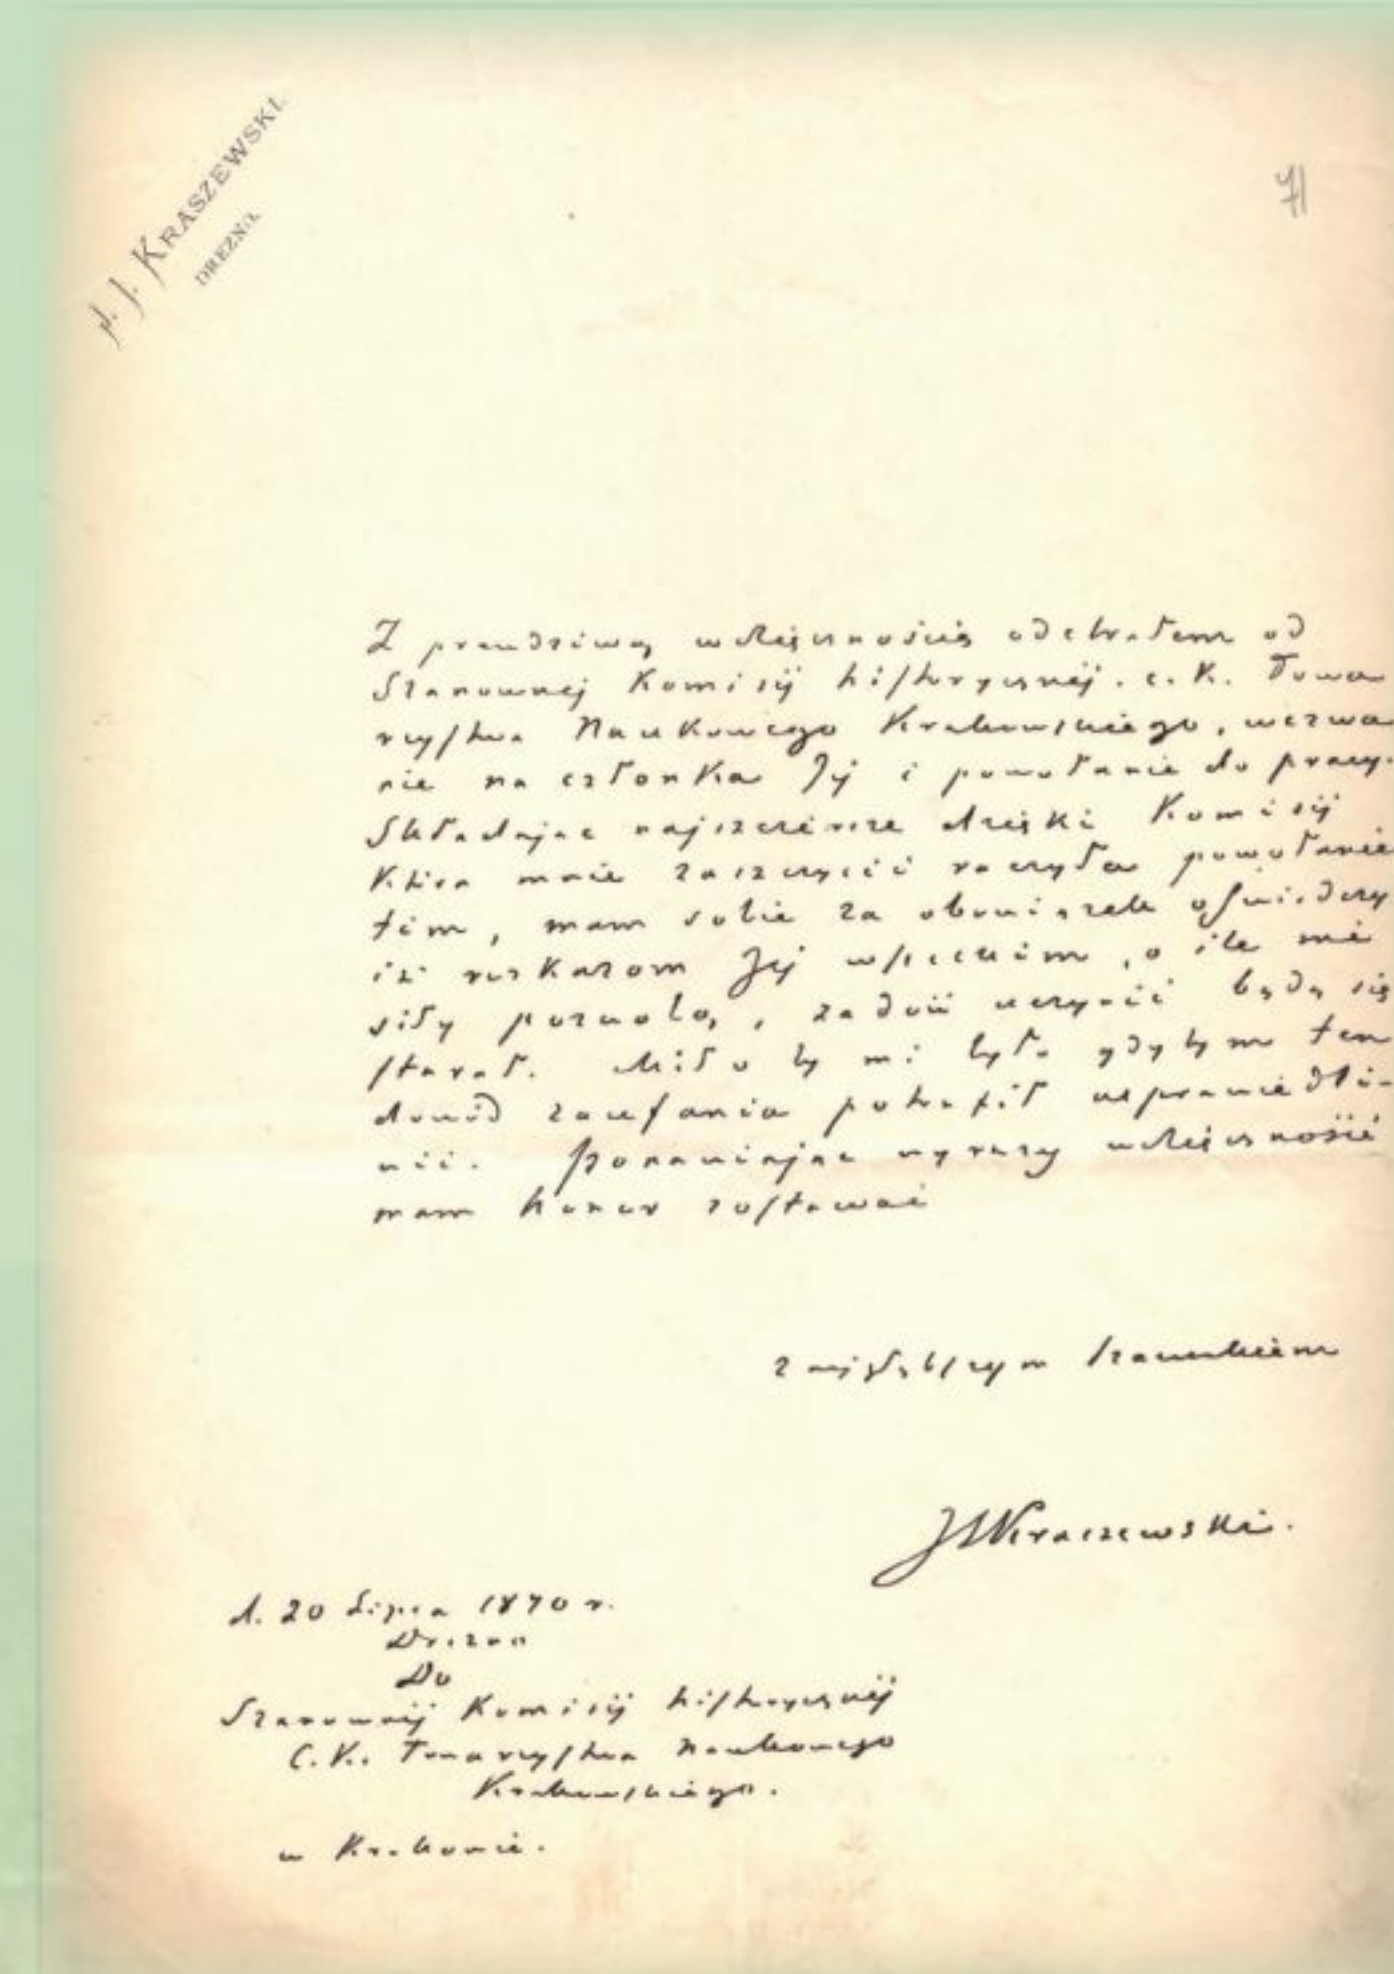 J. I. KRASZEWSKI.
DREZNO.
71
Z prawdziwą wdzięcznością odebrałem od
Szanownej Komisij historycznéj. c. k. Towa
rzystwa Naukowego Krakowskiego, wezwa
nie na członka Jéj i powołanie do pracy.
Składając najszczersze dzięki Komisij
która mnie zaszczycić raczyła powołanie
tém, mam sobie za obowiązek oświadczy
iż rozkazom Jéj wszelkim, o ile mi
siły pozwolą, zadość uczynić będę się
starał. Miło by mi było gdybym ten
dowód zaufania potrafił usprawiedli-
wić. Ponawiając wyrazy wdzięczności
mam honor zostawać
z najgłębszym szacunkiem
JIKraszewski.
d. 20 Lipca 1870 r.
Drezno
Do
Szanownéj Komisij historycznéj
C. K. Towarzystwa Naukowego
Krakowskiego.
w Krakowie.